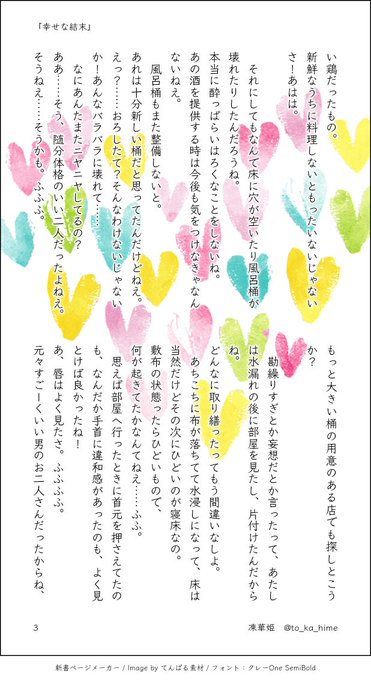 「幸せな結末」
い鶏だったもの。
新鮮なうちに料理しないともったいないじゃない
さ！あはは。
それにしてもなんで床に穴が空いたり風呂桶が
壊れたりしたんだろうね。
本当に酔っぱらいはろくなことをしないね。
あの酒を提供する時は今後も気をつけなきゃなん
ないねえ。
風呂桶もまた整備しないと。
あれは十分新しい桶だと思ってたんだけどねえ。
えっ？……おろしたて？そんなわけないじゃない
か！あんなバラバラに壊れて……
なにあんたまたニヤニヤしてるの？
ああ……そう、随分体格のいい二人だったよねえ。
そうねえ……そうかも。ふふふ。
もっと大きい桶の用意のある店でも探しとこう
か？
勘繰りすぎとか妄想だとか言ったって、あたし
は水漏れの後に部屋を見たし、片付けたんだから
ね。
どんなに取り繕ったってもう間違いなしよ。
あちこちに布が落ちてて水浸しになって、床は
当然だけどその次にひどいのが寝床なの。
敷布の状態ったらひどいもので、
何が起きてたかなんてねえ……ふふ。
思えば部屋へ行ったときに首元を押さえてたの
も、なんだか手首に違和感があったのも、よく見
とけば良かったね！
あ、唇はよく見たさ。ふふふふ。
元々すごーくいい男のお二人さんだったからね、
3
凍華姫　@to_ka_hime
新書ページメーカー / Image by てんぱる素材 / フォント：クレーOne SemiBold